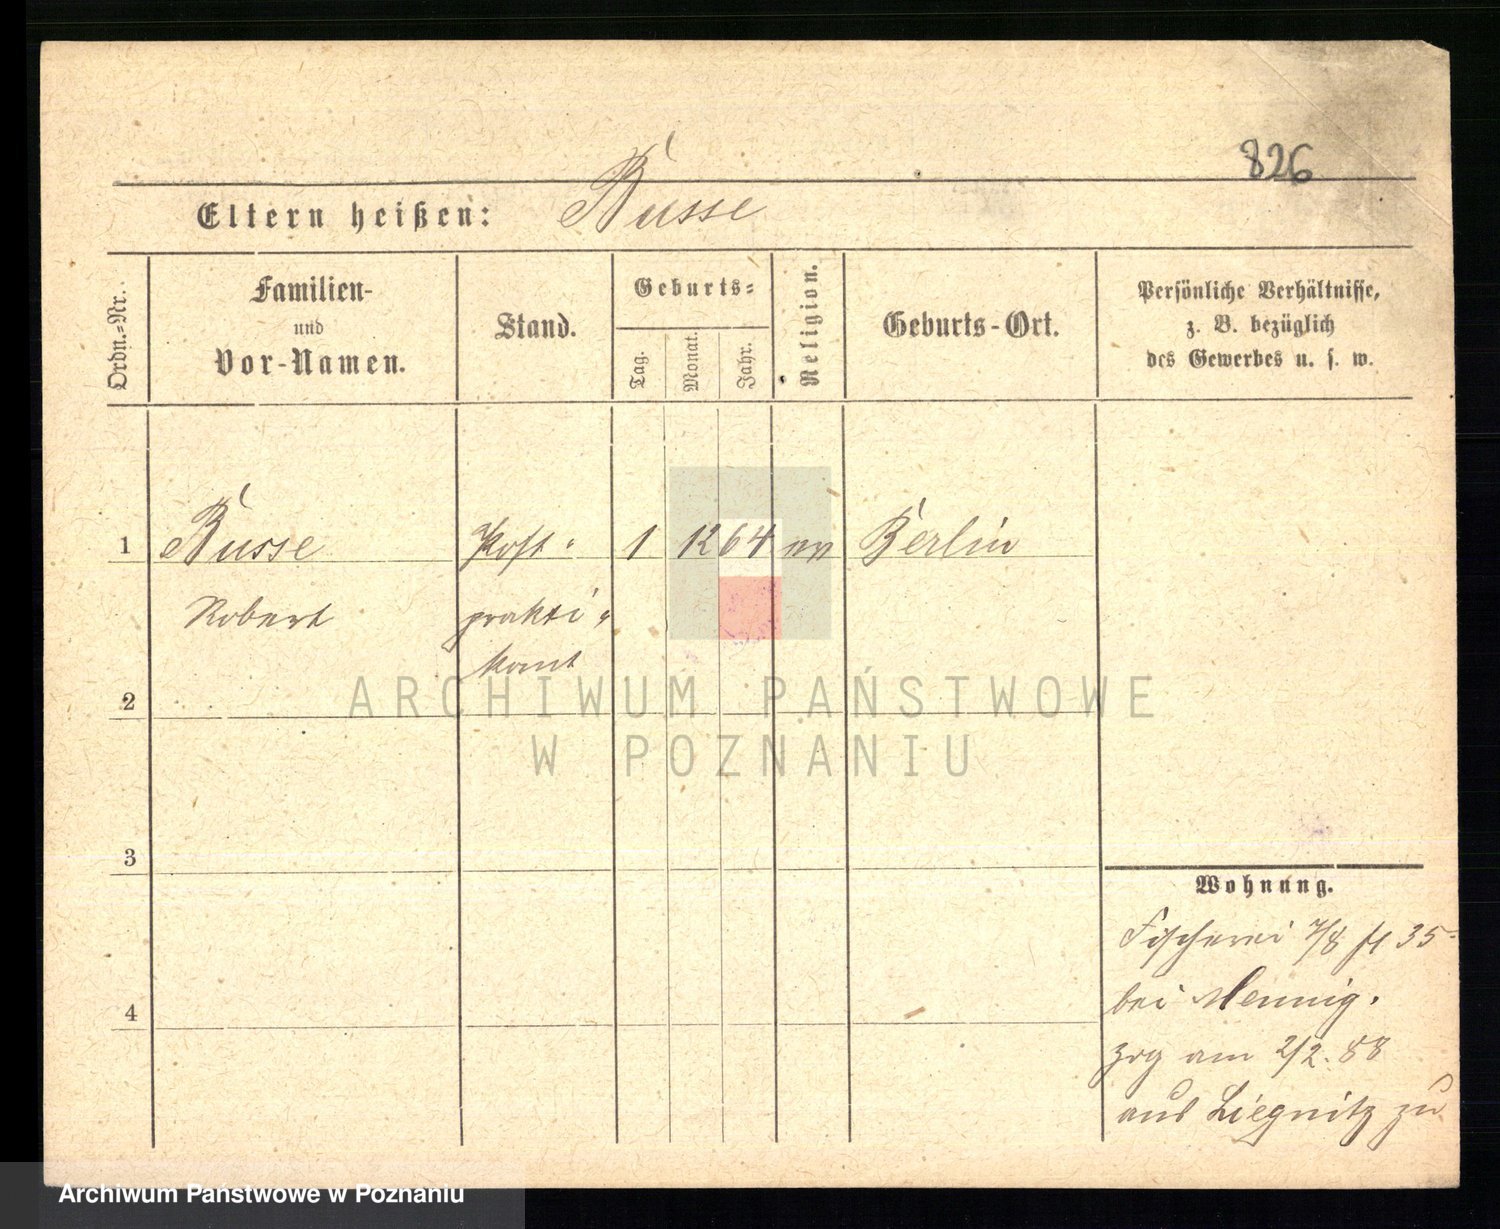 826
Eltern heißen: Busse
Ordn.=Nr.
Familien-
und
Vor-Namen.
Stand.
Geburts=
Tag.
Monat.
Jahr.
Religion.
Geburts-Ort.
Persönliche Verhältnisse,
z. B. bezüglich
des Gewerbes u. s. w.
1 Busse Post- 1 12 64 ev Berlin
Robert prakti-
kant
2
3
4
Wohnung.
Fischerei 7/8 35
bei Mennig.
zog am 2/2. 88
aus Liegnitz zu
ARCHIWUM PAŃSTWOWE
W POZNANIU
Archiwum Państwowe w Poznaniu